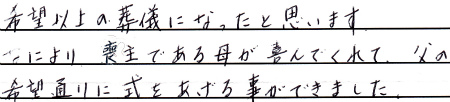 希望以上の葬儀になったと思います。
なにより 喪主である母が喜んでくれて、父の
希望通りに式をあげる事ができました。